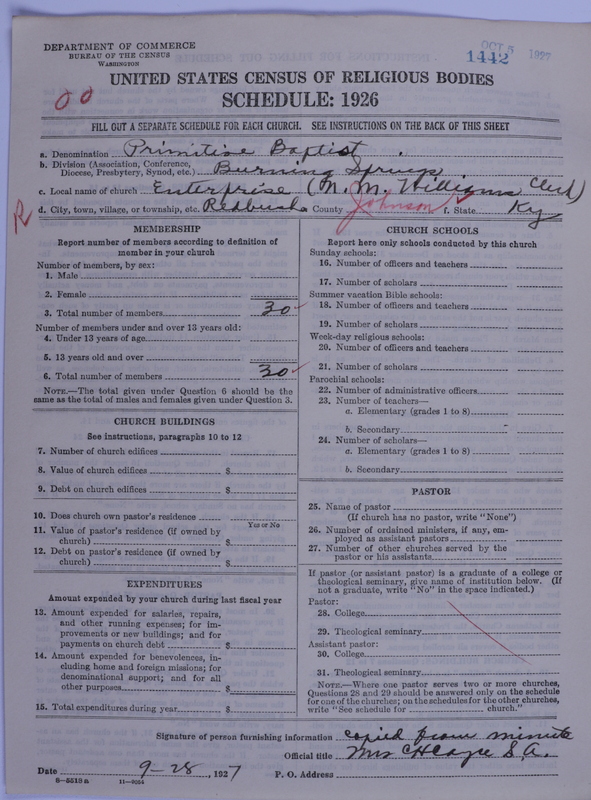 DEPARTMENT OF COMMERCE
BUREAU OF THE CENSUS
WASHINGTON
OCT 5 1927
1442
UNITED STATES CENSUS OF RELIGIOUS BODIES
SCHEDULE: 1926
00
FILL OUT A SEPARATE SCHEDULE FOR EACH CHURCH. SEE INSTRUCTIONS ON THE BACK OF THIS SHEET
a. Denomination Primitive Baptist
b. Division (Association, Conference, Diocese, Presbytery, Synod, etc.) Burning Springs
c. Local name of church Enterprise (M. M. Williams Clerk)
R
d. City, town, village, or township, etc. Redbush County Johnson f. State Ky
MEMBERSHIP
Report number of members according to definition of
member in your church
Number of members, by sex:
1. Male
2. Female
3. Total number of members 30
Number of members under and over 13 years old:
4. Under 13 years of age
5. 13 years old and over
6. Total number of members 30
NOTE.—The total given under Question 6 should be
same as the total of males and females given under Question 3.
CHURCH BUILDINGS
See instructions, paragraphs 10 to 12
7. Number of church edifices
8. Value of church edifices $
9. Debt on church edifices $
10. Does church own pastor's residence
Yes or No
11. Value of pastor's residence (if owned by
church) $
12. Debt on pastor's residence (if owned by
church) $
EXPENDITURES
Amount expended by your church during last fiscal year
13. Amount expended for salaries, repairs,
and other running expenses; for im-
provements or new buildings; and for
payments on church debt $
14. Amount expended for benevolences, in-
cluding home and foreign missions; for
denominational support; and for all
other purposes $
15. Total expenditures during year $
CHURCH SCHOOLS
Report here only schools conducted by this church
Sunday schools:
16. Number of officers and teachers
17. Number of scholars
Summer vacation Bible schools:
18. Number of officers and teachers
19. Number of scholars
Week-day religious schools:
20. Number of officers and teachers
21. Number of scholars
Parochial schools:
22. Number of administrative officers
23. Number of teachers—
a. Elementary (grades 1 to 8)
b. Secondary
24. Number of scholars—
a. Elementary (grades 1 to 8)
b. Secondary
PASTOR
25. Name of pastor
(If church has no pastor, write "None")
26. Number of ordained ministers, if any, em-
ployed as assistant pastors
27. Number of other churches served by the
pastor or his assistants
If pastor (or assistant pastor) is a graduate of a college or
theological seminary, give name of institution below. (If
not a graduate, write "No" in the space indicated.)
Pastor:
28. College
29. Theological seminary
Assistant pastor:
30. College
31. Theological seminary
NOTE.—Where one pastor serves two or more churches,
Questions 28 and 29 should be answered only on the schedule
for one of the churches; on the schedules for the other churches,
write "See schedule for church."
Signature of person furnishing information copied from minute
Official title Mrs S. A.
Date 9-28, 1927 P. O. Address
8—5518a 11—9054